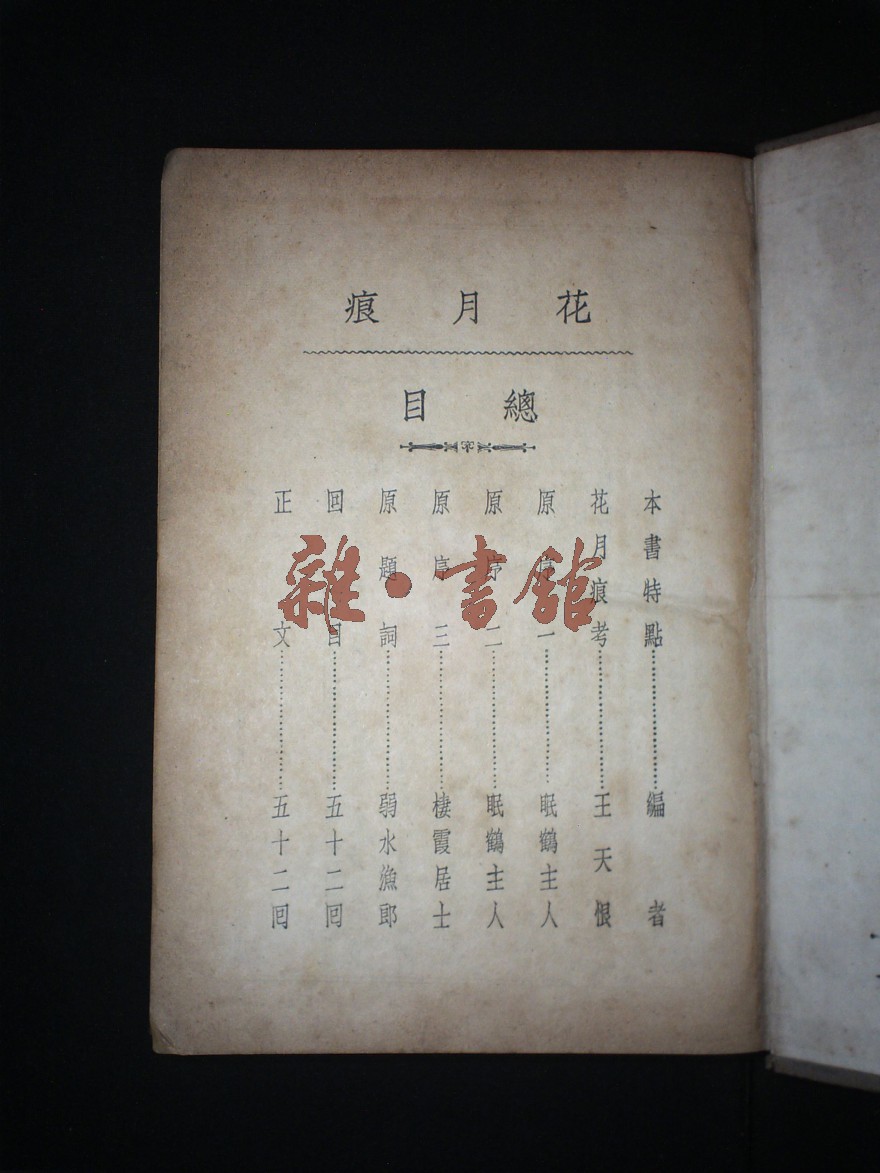 花月痕
總目
本書特點……編者
花月痕考……王天恨
原序一……眠鶴主人
原序二……眠鶴主人
原序三……棲霞居士
原題詞……弱水漁郎
回目……五十二回
正文……五十二回
雜·書館